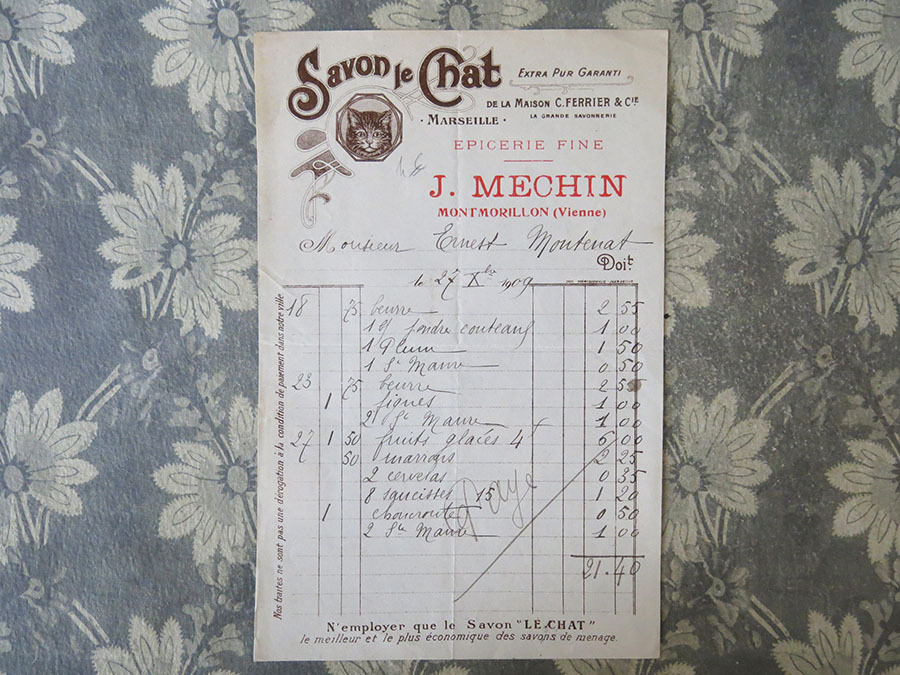 Savon le Chat
EXTRA PUR GARANTI
DE LA MAISON C. FERRIER & CIE
· MARSEILLE ·
LA GRANDE SAVONNERIE
EPICERIE FINE
J. MECHIN
MONTMORILLON (Vienne)
Monsieur Ernest Montenat
Doit
le 27 Xbre 1909
18 75 beurre 2 55
1 couteaux 1 00
1 Plum 1 50
1 Ste Maure 0 50
23 75 beurre 2 55
1 figues 1 00
2 Ste Maure 1 00
27 1 50 fruits glacés 4 6 00
50 marrons 2 25
2 cervelas 0 35
8 saucisses 15 1 20
1 choucroute 0 50
2 Ste Maure 1 00
Payé
21.40
Nos traites ne sont pas une dérogation à la condition de paiement dans notre ville
N'employer que le Savon "LE CHAT"
le meilleur et le plus économique des savons de menage.